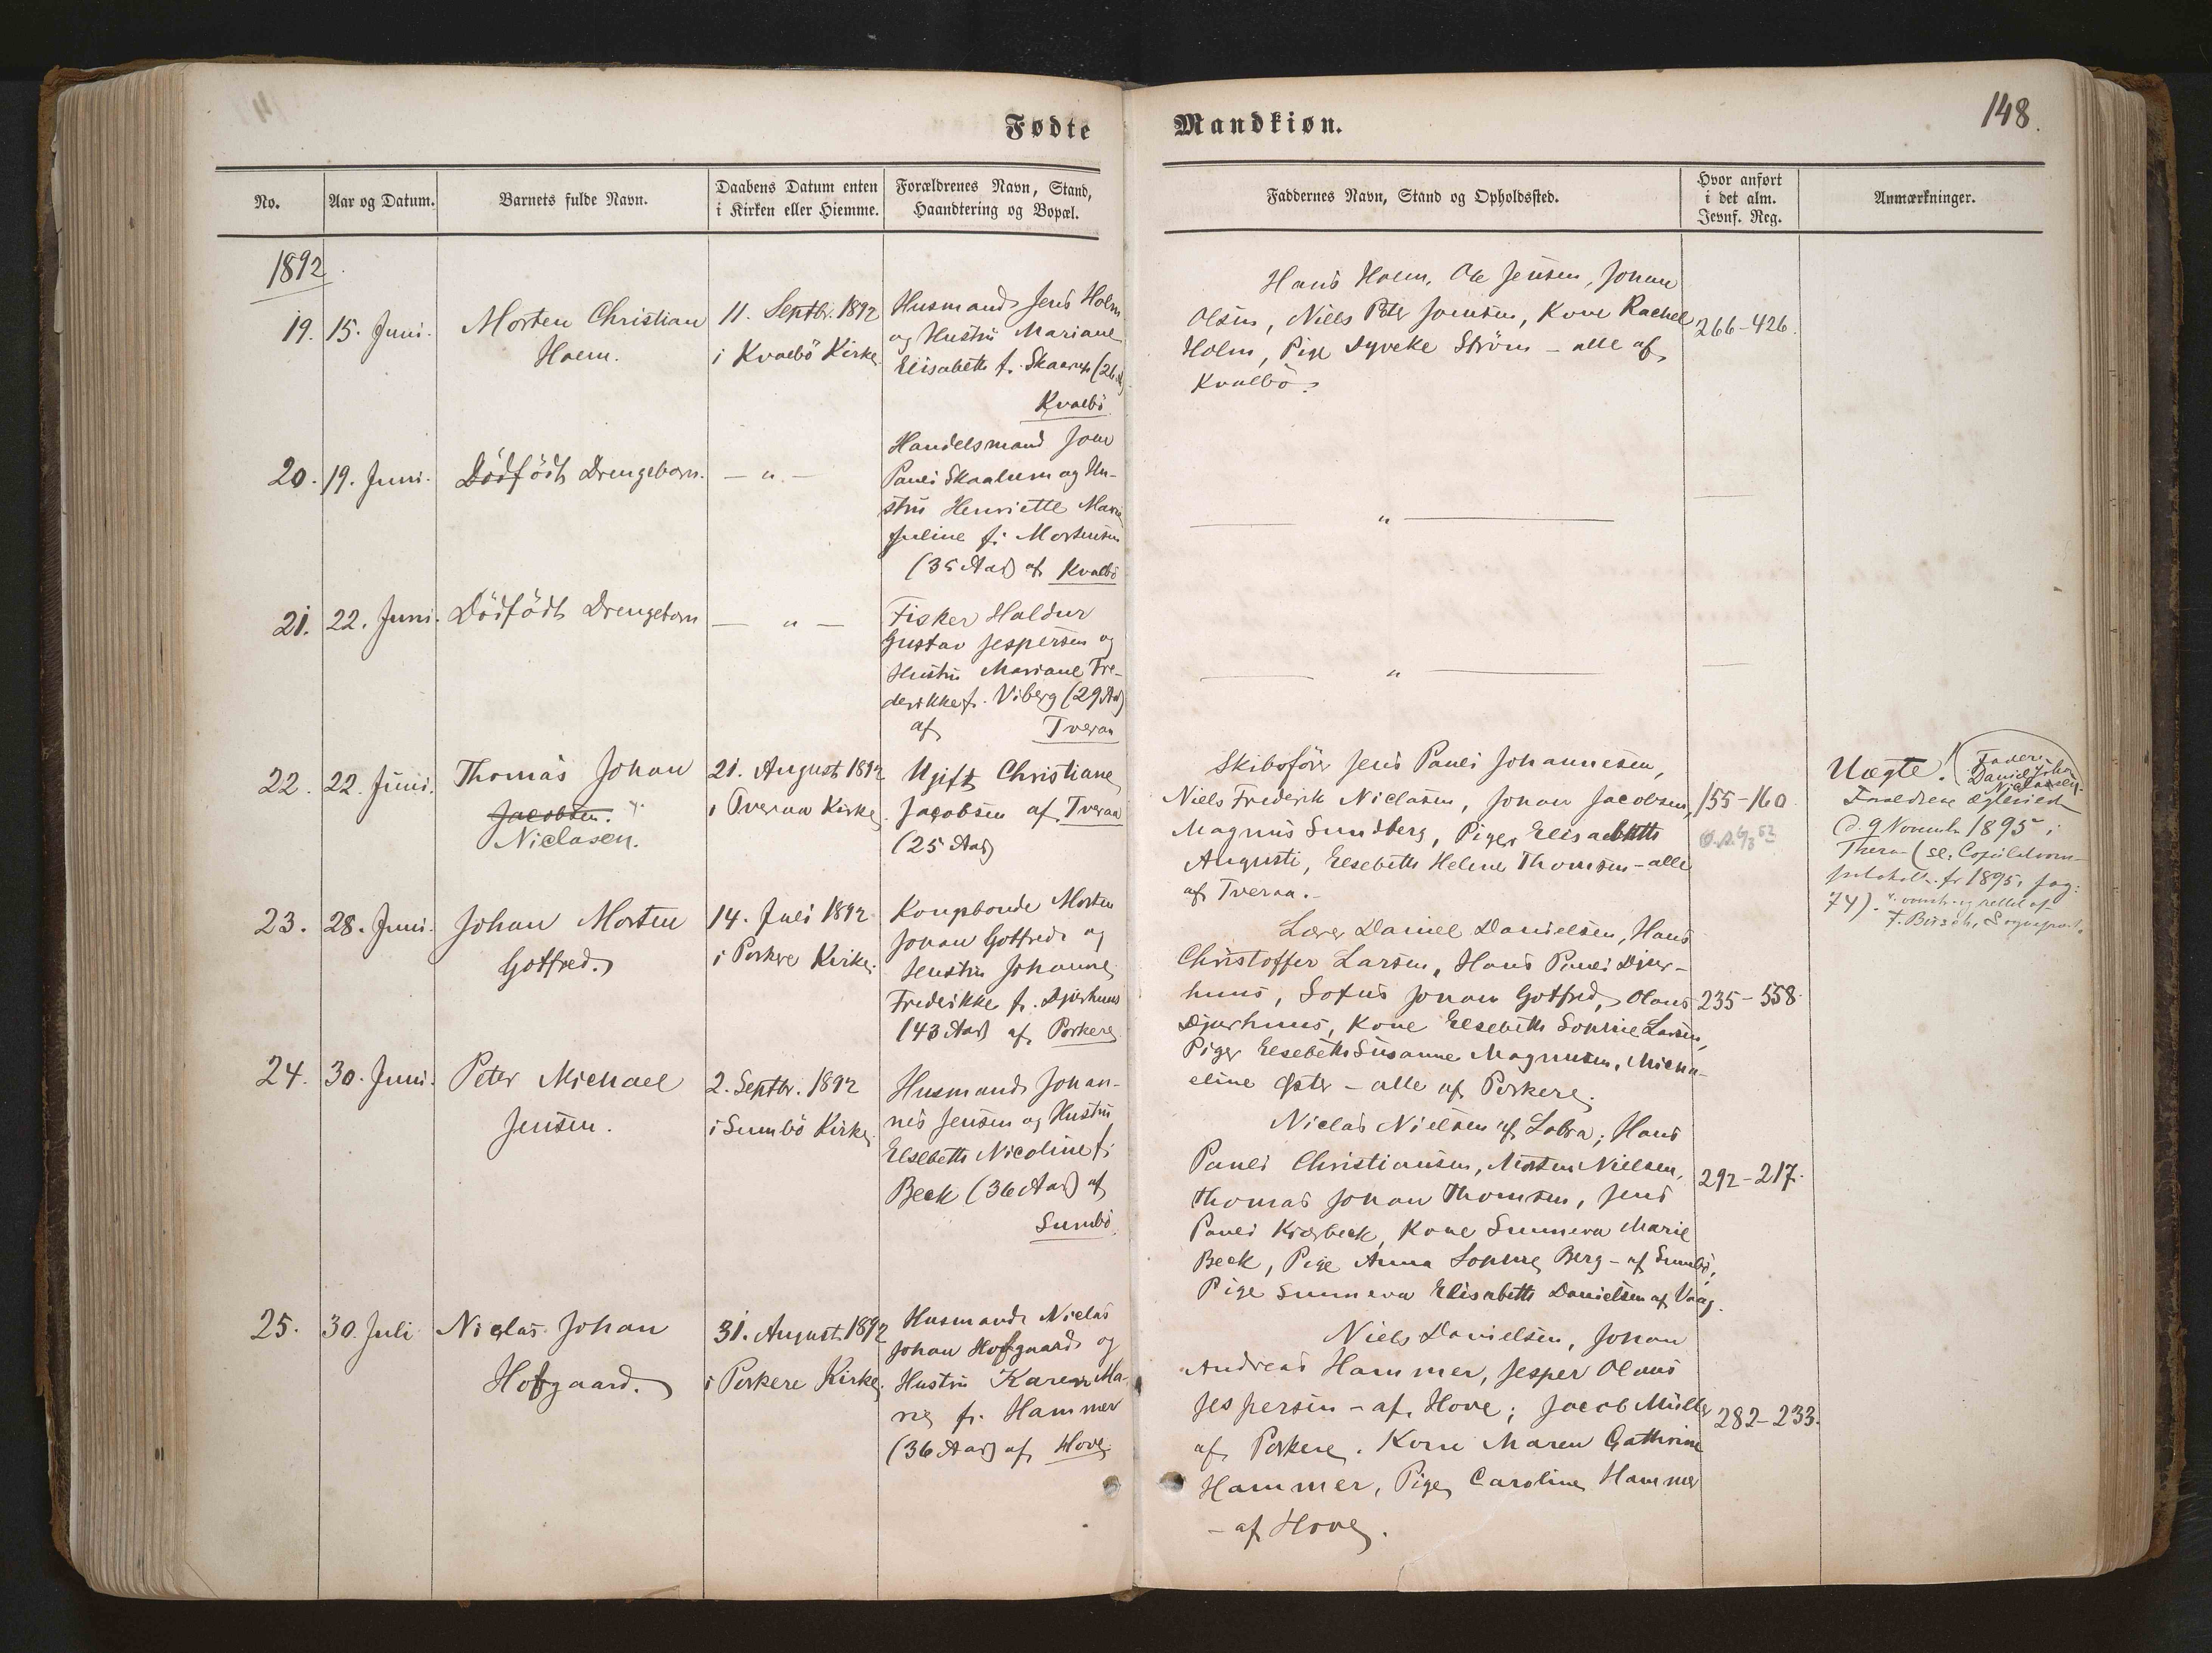 Fødte
Mandkiøn.
148.
No.
Aar og Datum.
Barnets fulde Navn.
Daabens Datum enten
i Kirken eller Hiemme.
Forældrenes Navn, Stand,
Haandtering og Bopæl.
Faddernes Navn, Stand og Opholdssted.
Hvor anført
i det alm.
Jevnf. Reg.
Anmærkninger.
1892
19. 15. Juni.
Morten Christian
Holm.
11. Septbr. 1892
i Kvalbö Kirke
Husmand Jens Holm
og Hustru Mariane
Elisabeth f. Skaarup (26 A)
Kvalbö
Hans Holm, Ole Jensen, Johan
Olsen, Niels Peter Joensen, Kone Rachel
Holm, Pige Dyveke Ström - alle af
Kvalbö.
266-426.
20. 19. Juni.
Dödfödt Drengebarn.
- " -
Handelsmand Joen
Pauli Skaalum og Hu-
stru Henriette Marie
Juline f. Mortensen
(35 Aar) af Kvalbö
"
21. 22. Juni.
Dödfödt Drengebarn
- " -
Fisker Haldur
Gustav Jespersen og
Hustru Mariane Fre-
derikke f. Viberg (29 Aar)
af Tveraa
"
22. 22. Juni.
Thomas Johan
Jacobsen.
Niclasen.
21. August 1892
i Tveraa Kirke.
Ugift Christiane
Jacobsen af Tveraa
(25 Aar)
Skibsförer Jens Pauli Johannesen,
Niels Frederik Niclasen, Johan Jacobsen,
Magnus Sundberg, Piger Elisabeth
Augusti, Elsebeth Helene Thomsen - alle
af Tveraa.
155-160
Uægte!
Fader:
Daniel Johan
Niclasen.
Forældrene ægteviet
d. 9 Novemb. 1895 i
Thera (se: Copulations-
protokoll. for 1895, pag:
74).
23. 28. Juni.
Johan Morten
Gotfred.
14. Juli 1892
i Porkere Kirke.
Kongsbonde Morten
Johan Gotfred og
Hustru Johanne
Frederikke f. Djurhuus
(43 Aar) af Porkere
Lærer Daniel Danielsen, Hans
Christoffer Larsen, Hans Pauli Djur-
huus, Sofus Johan Gotfred, Olaus
Djurhuus, Kone Elsebeth Sophie Larsen,
Piger Elsebeth Susanne Magnusen, Micha-
eline Øster - alle af Porkere.
235-558.
24. 30. Juni.
Peter Michael
Jensen.
2. Septbr. 1892
i Sumbö Kirke.
Husmand Johan-
nes Jensen og Hustru
Elsebeth Nicoline f.
Beck (36 Aar) af
Sumbö.
Niclas Nielsen af Lobra; Hans
Pauli Christiansen, Morten Nielsen,
Thomas Johan Thomsen, Jens
Pauli Kjærbeck, Kone Sunneva Marie
Beck, Pige Anna Sophie Berg - af Sumbö,
Pige Sunneva Elisabeth Danielsen af Vaag.
292-217.
25. 30. Juli
Niclas Johan
Hofgaard.
31. August 1892
i Porkere Kirke.
Husmand Niclas
Johan Hofgaard og
Hustru Karen Ma-
rie f. Hammer
(36 Aar) af Hove
Niels Danielsen, Johan
Andreas Hammer, Jesper Olaus
Jespersen - af Hove; Jacob Müller
af Porkere. Kone Maren Cathrine
Hammer, Pige Caroline Hammer
- af Hove.
282-233.